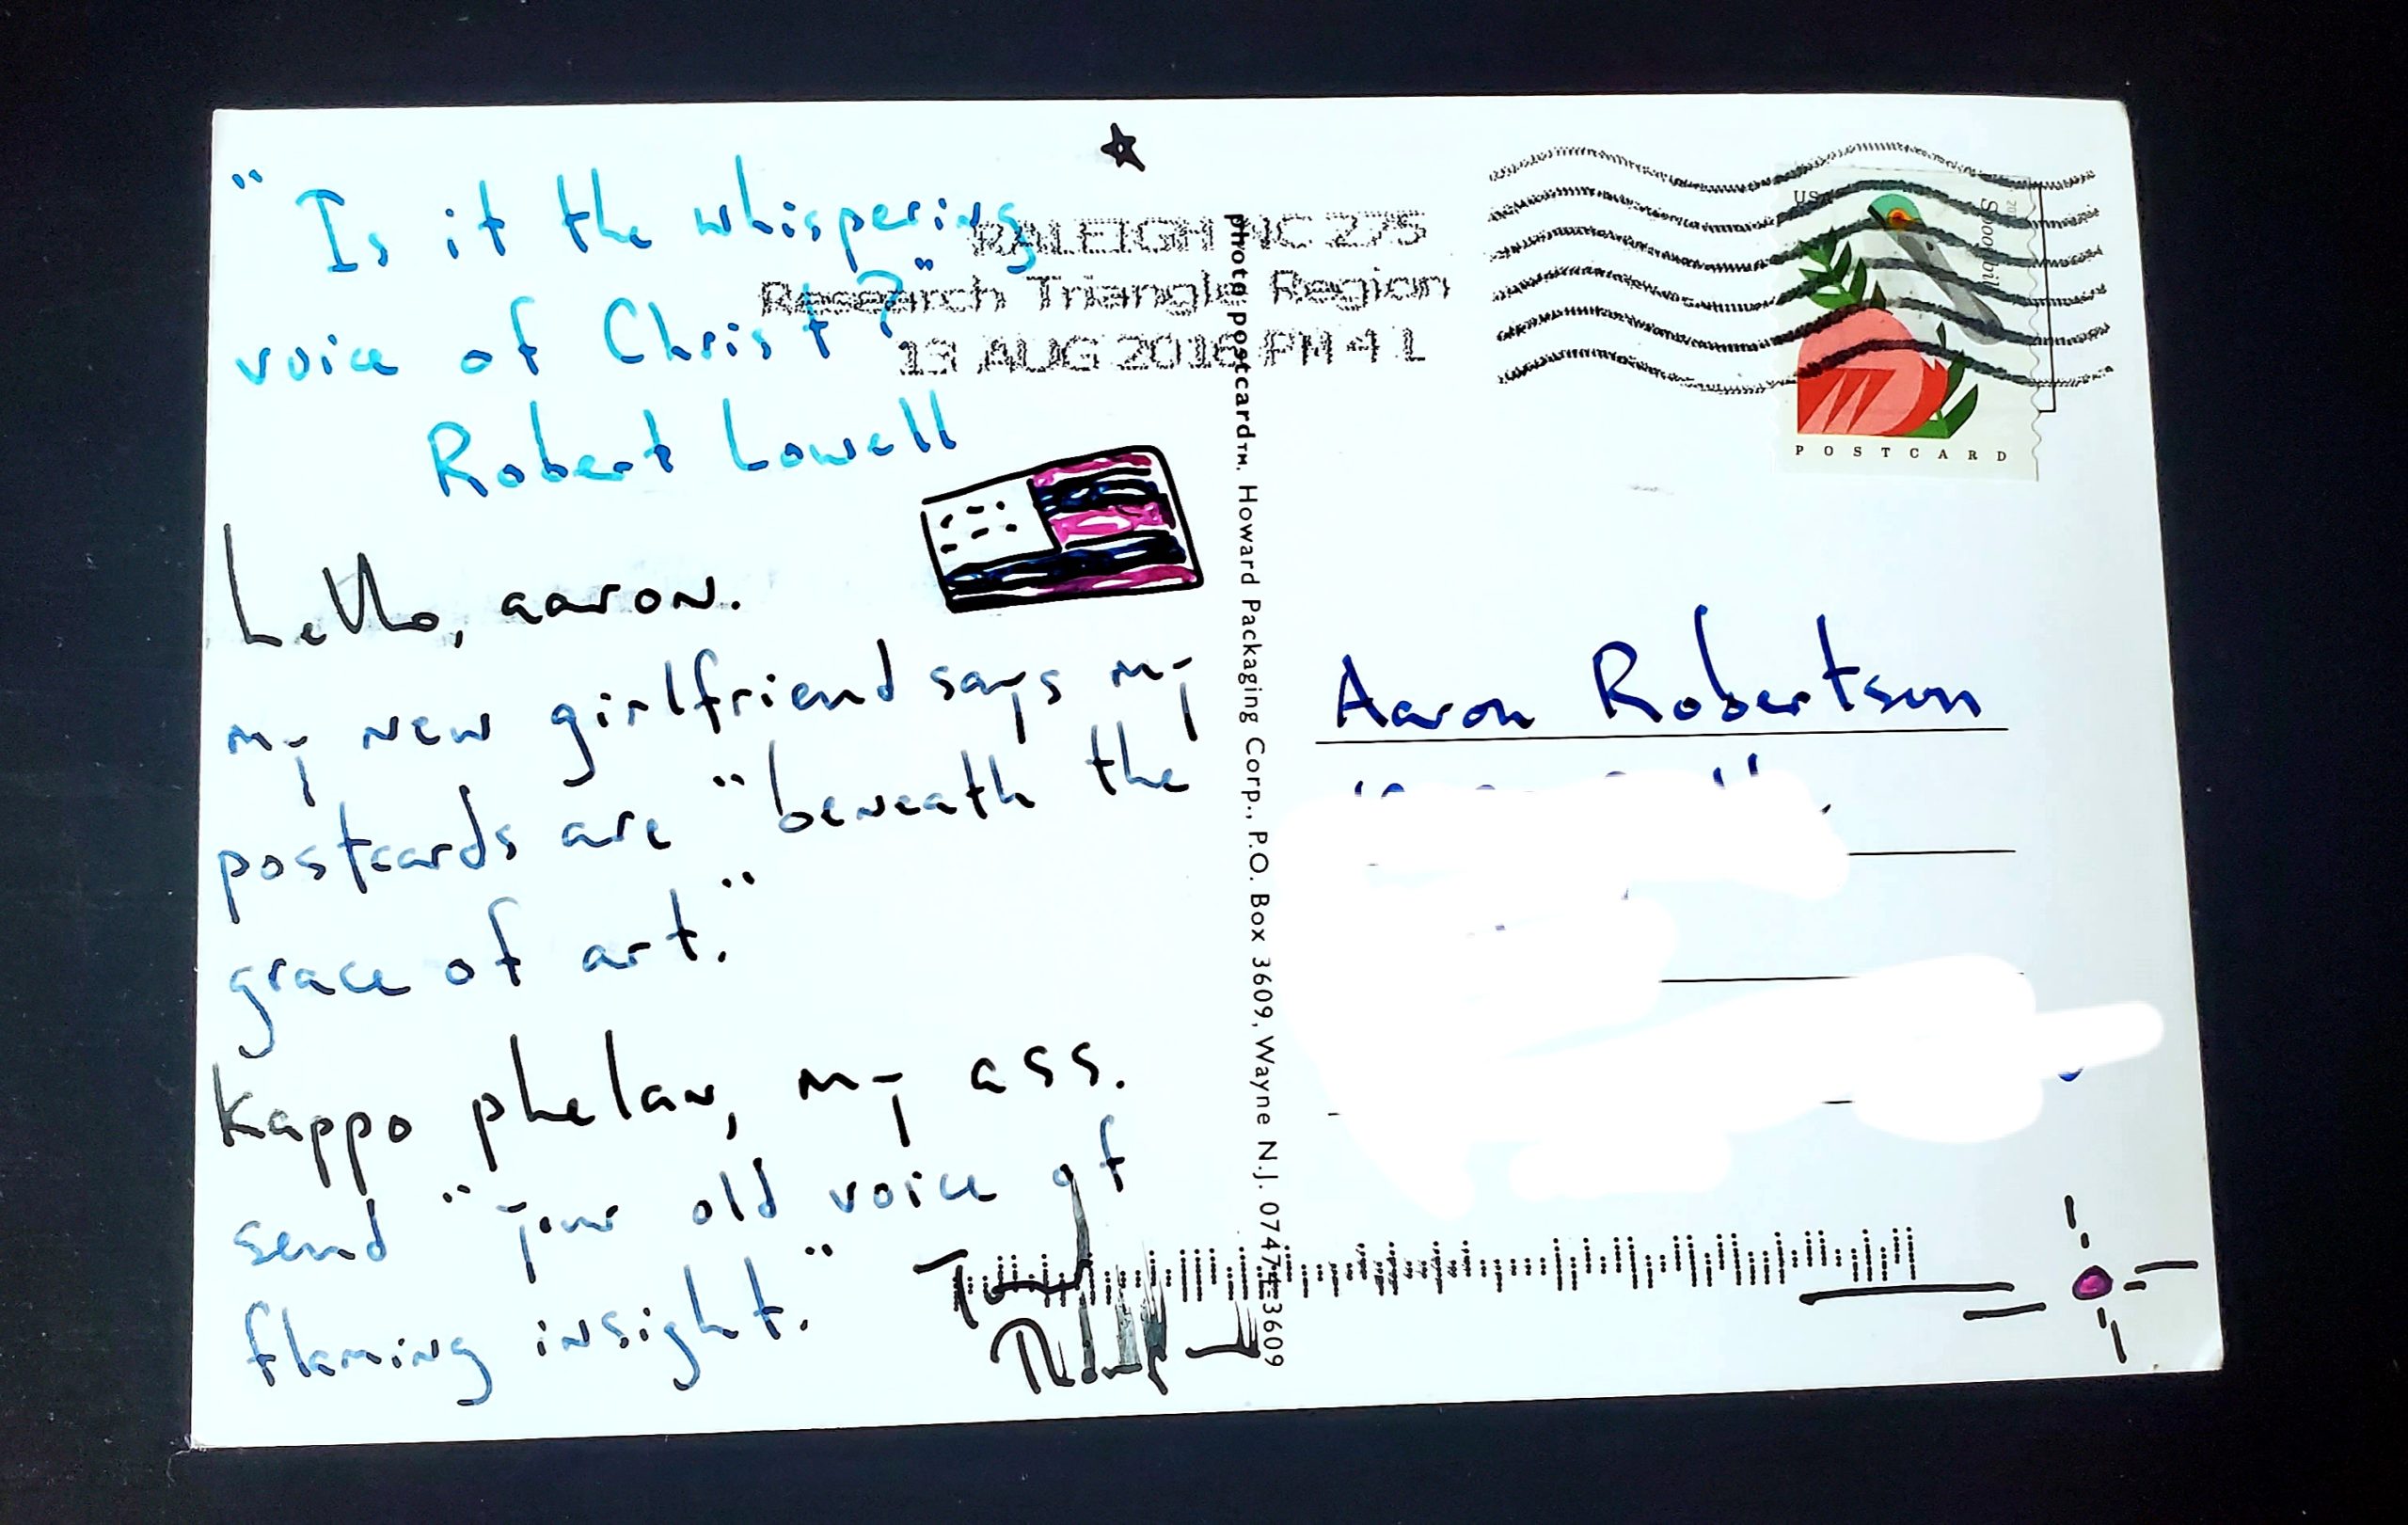 "Is it the whispering
voice of Christ?"
Robert Lowell
hello, aaron.
my new girlfriend says my
postcards are "beneath the
grace of art."
kappo phelan, my ass.
send "your old voice of
flaming insight."
RALEIGH NC 275
Research Triangle Region
13 AUG 2018 PM 4 L
photo postcard™. Howard Packaging Corp., P.O. Box 3609, Wayne N.J. 07474-3609
US
Spoonbill
POSTCARD
Aaron Robertson